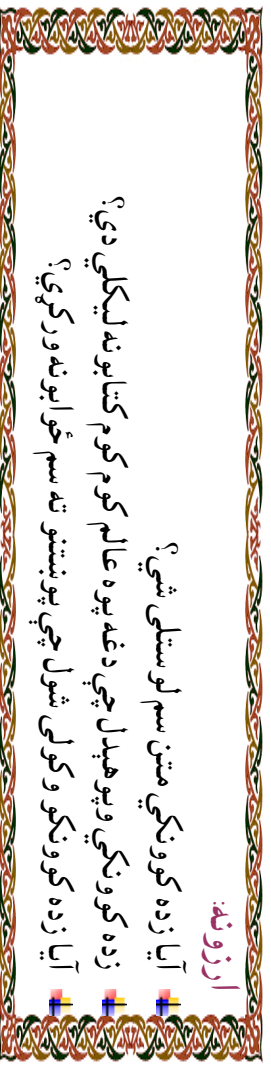 ارزونه:
آيا زده کوونکي متن سم لوستلی شي؟
زده کوونکي وپوهېدل چې دغه پوه عالم کوم کوم کتابونه ليکلي دي؟
آيا زده کوونکو وکولی شول چې پوښتنو ته سم ځوابونه ورکړي؟